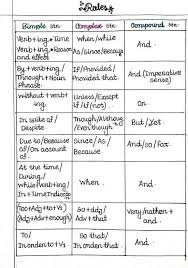 Rules
Simple sen. Complex sen. Compound sen.
Verb+ing→Time When/while And.
Verb+ing→Reason As/Since/Because
and effect
By+verb+ing/ If/Provided And (Imperative
Through+Noun Provided that. sense)
Phrase
Without+verb+ Unless/Except Or.
ing If/(not)
In spite of/ Though/Although/ But/Yet
Despite Even though
Due to/Because Since/As/ And/so/For
of/On account Because
of.
At the time/ When. And
During/
while+verb+ing/
In+Time Indicate
(Too+Adj+to+V1) So+adj/ Very/rather+
(Adj+enough) Adv+that and.
To/ So that/ And.
In order to+V1 In order that.